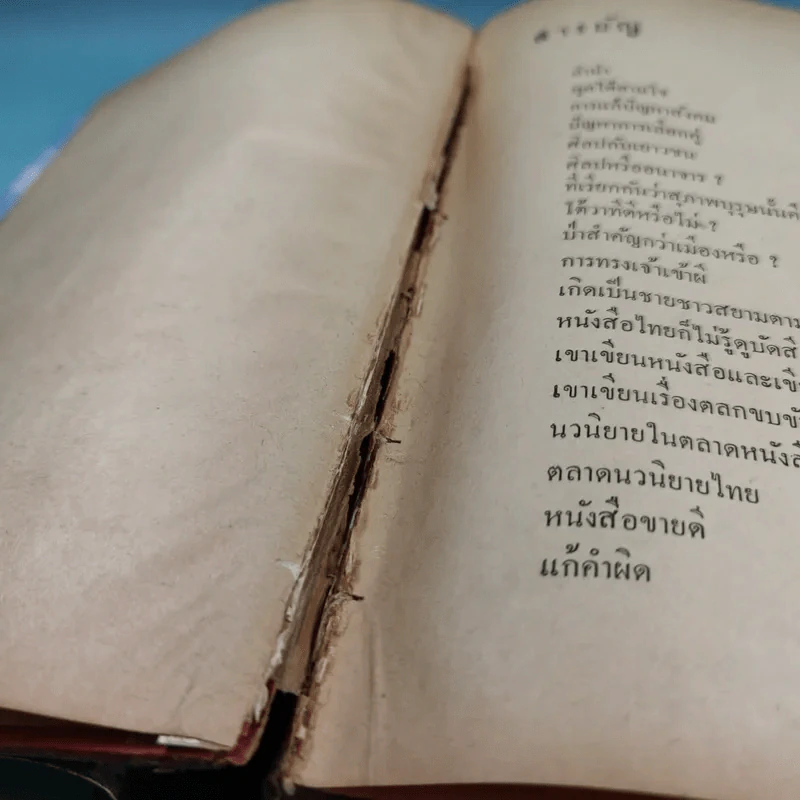 สารบัญ
คำนำ
พูดได้ตามใจ
การแก้ปัญหาสังคม
ปัญหาการเลือกคู่
ศิลปกับเยาวชน
ศิลปหรืออนาจาร ?
ที่เรียกกันว่าสุภาพบุรุษนั้นคื
โต้วาทีดีหรือไม่ ?
ป่าสำคัญกว่าเมืองหรือ ?
การทรงเจ้าเข้าผี
เกิดเป็นชายชาวสยามตาม
หนังสือไทยก็ไม่รู้ดูบัดสี
เขาเขียนหนังสือและเขี
เขาเขียนเรื่องตลกขบขั
นวนิยายในตลาดหนังสื
ตลาดนวนิยายไทย
หนังสือขายดี
แก้คำผิด